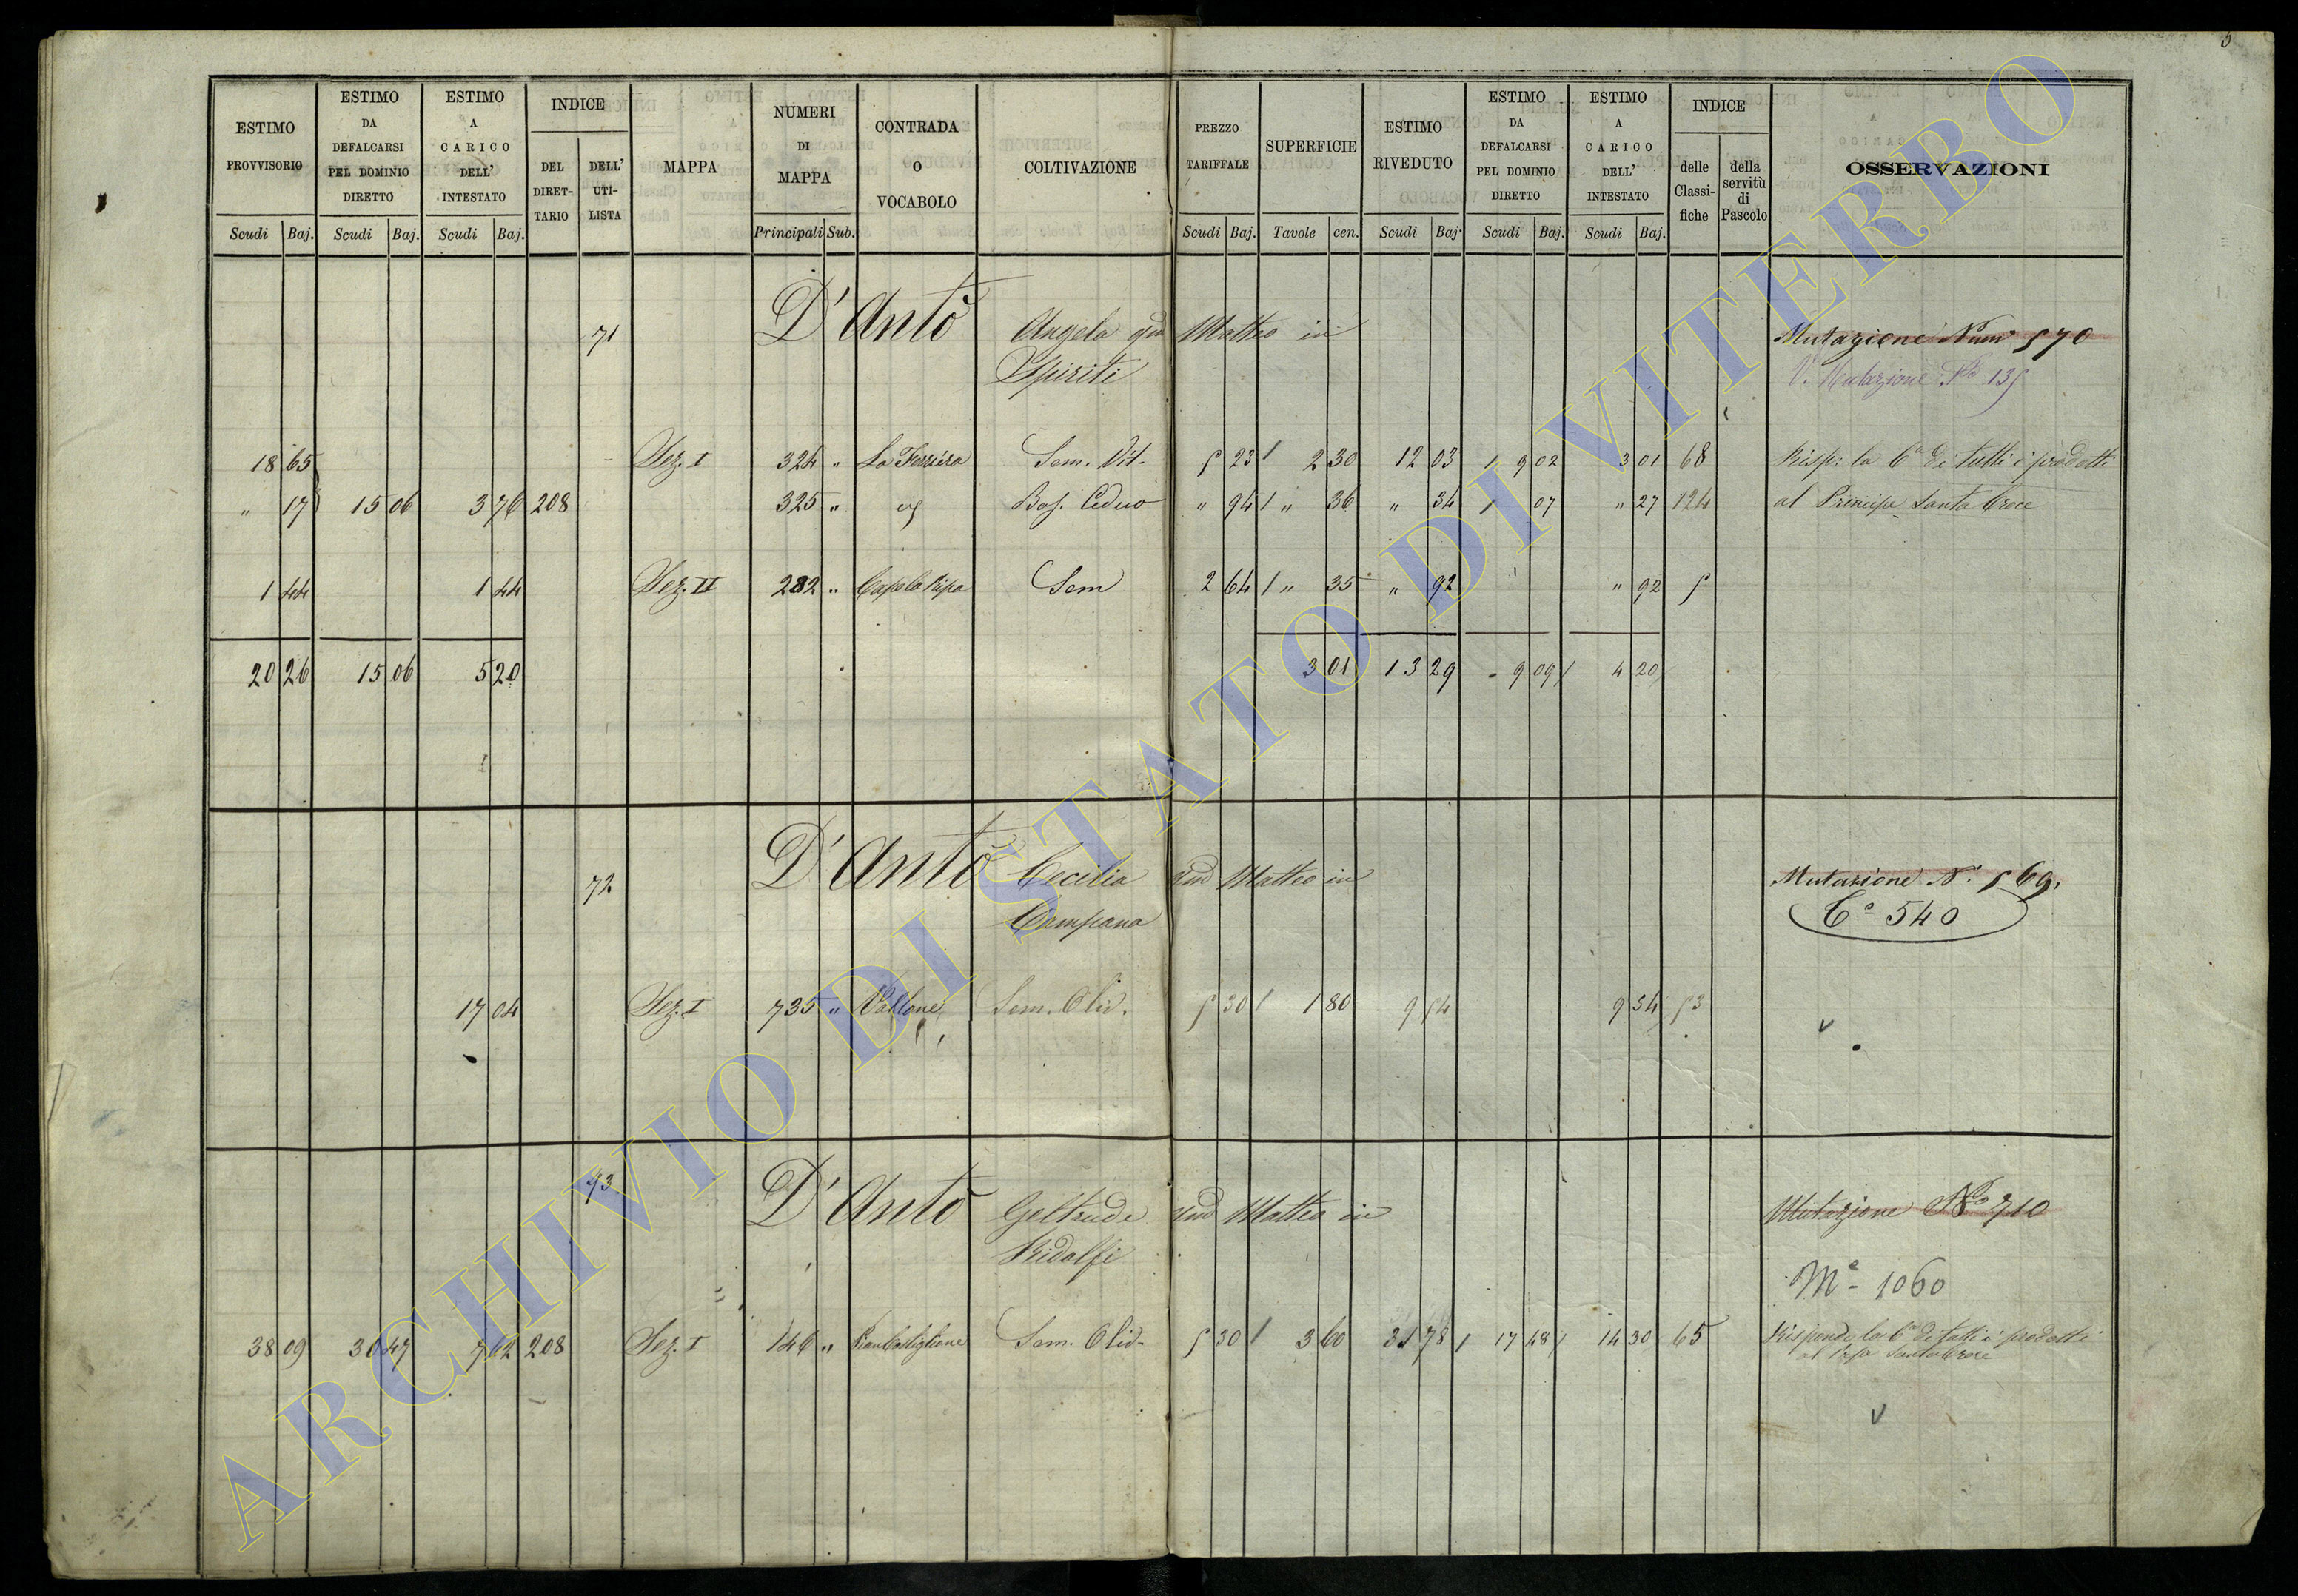 5
ESTIMO PROVVISORIO | ESTIMO DA DEFALCARSI PEL DOMINIO DIRETTO | ESTIMO A CARICO DELL' INTESTATO | INDICE DEL DIRET-TARIO | DELL' UTI-LISTA | MAPPA | NUMERI DI MAPPA | CONTRADA O VOCABOLO | COLTIVAZIONE | PREZZO TARIFFALE | SUPERFICIE | ESTIMO RIVEDUTO | ESTIMO DA DEFALCARSI PEL DOMINIO DIRETTO | ESTIMO A CARICO DELL' INTESTATO | INDICE delle Classi-fiche | della servitù di Pascolo | OSSERVAZIONI
Scudi Baj. Scudi Baj. Scudi Baj. Principali Sub. Scudi Baj. Tavole cen. Scudi Baj. Scudi Baj. Scudi Baj.
71 D'Antò Angela qm Matteo in Mutazione Num° 570
Spiriti Vª Mutazione N° 135
18 65 Sez. I 324 " La Ferriera Sem. Vit. 5 23 2 30 12 03 9 02 3 01 68 Risp: la 6ª di tutti i prodotti
" 17 15 06 3 76 208 325 " Bos. Ceduo " 94 " 36 " 34 07 " 27 124 al Principe Santa Croce
1 44 1 44 Sez. II 282 " Capo la Ripa Sem 2 64 " 35 " 92 " 92 5
20 26 15 06 5 20 3 01 13 29 9 09 4 20
72 D'Antò Cecilia qm Matteo in Mutazione N. 569.
Campana Cª 540
17 04 Sez. I 735 " Vallone Sem. Oliv. 5 30 1 80 9 54 9 54 53
73 D'Antò Geltrude qm Matteo in Mutazione N° 710
Ridolfi
Mª 1060
38 09 30 47 7 62 208 Sez. I 146 " Pian Castiglione Sem. Oliv. 5 30 3 60 31 78 17 48 14 30 65 Risponde la 6ª di tutti i prodotti
al Santa Croce
ARCHIVIO DI STATO DI VITERBO